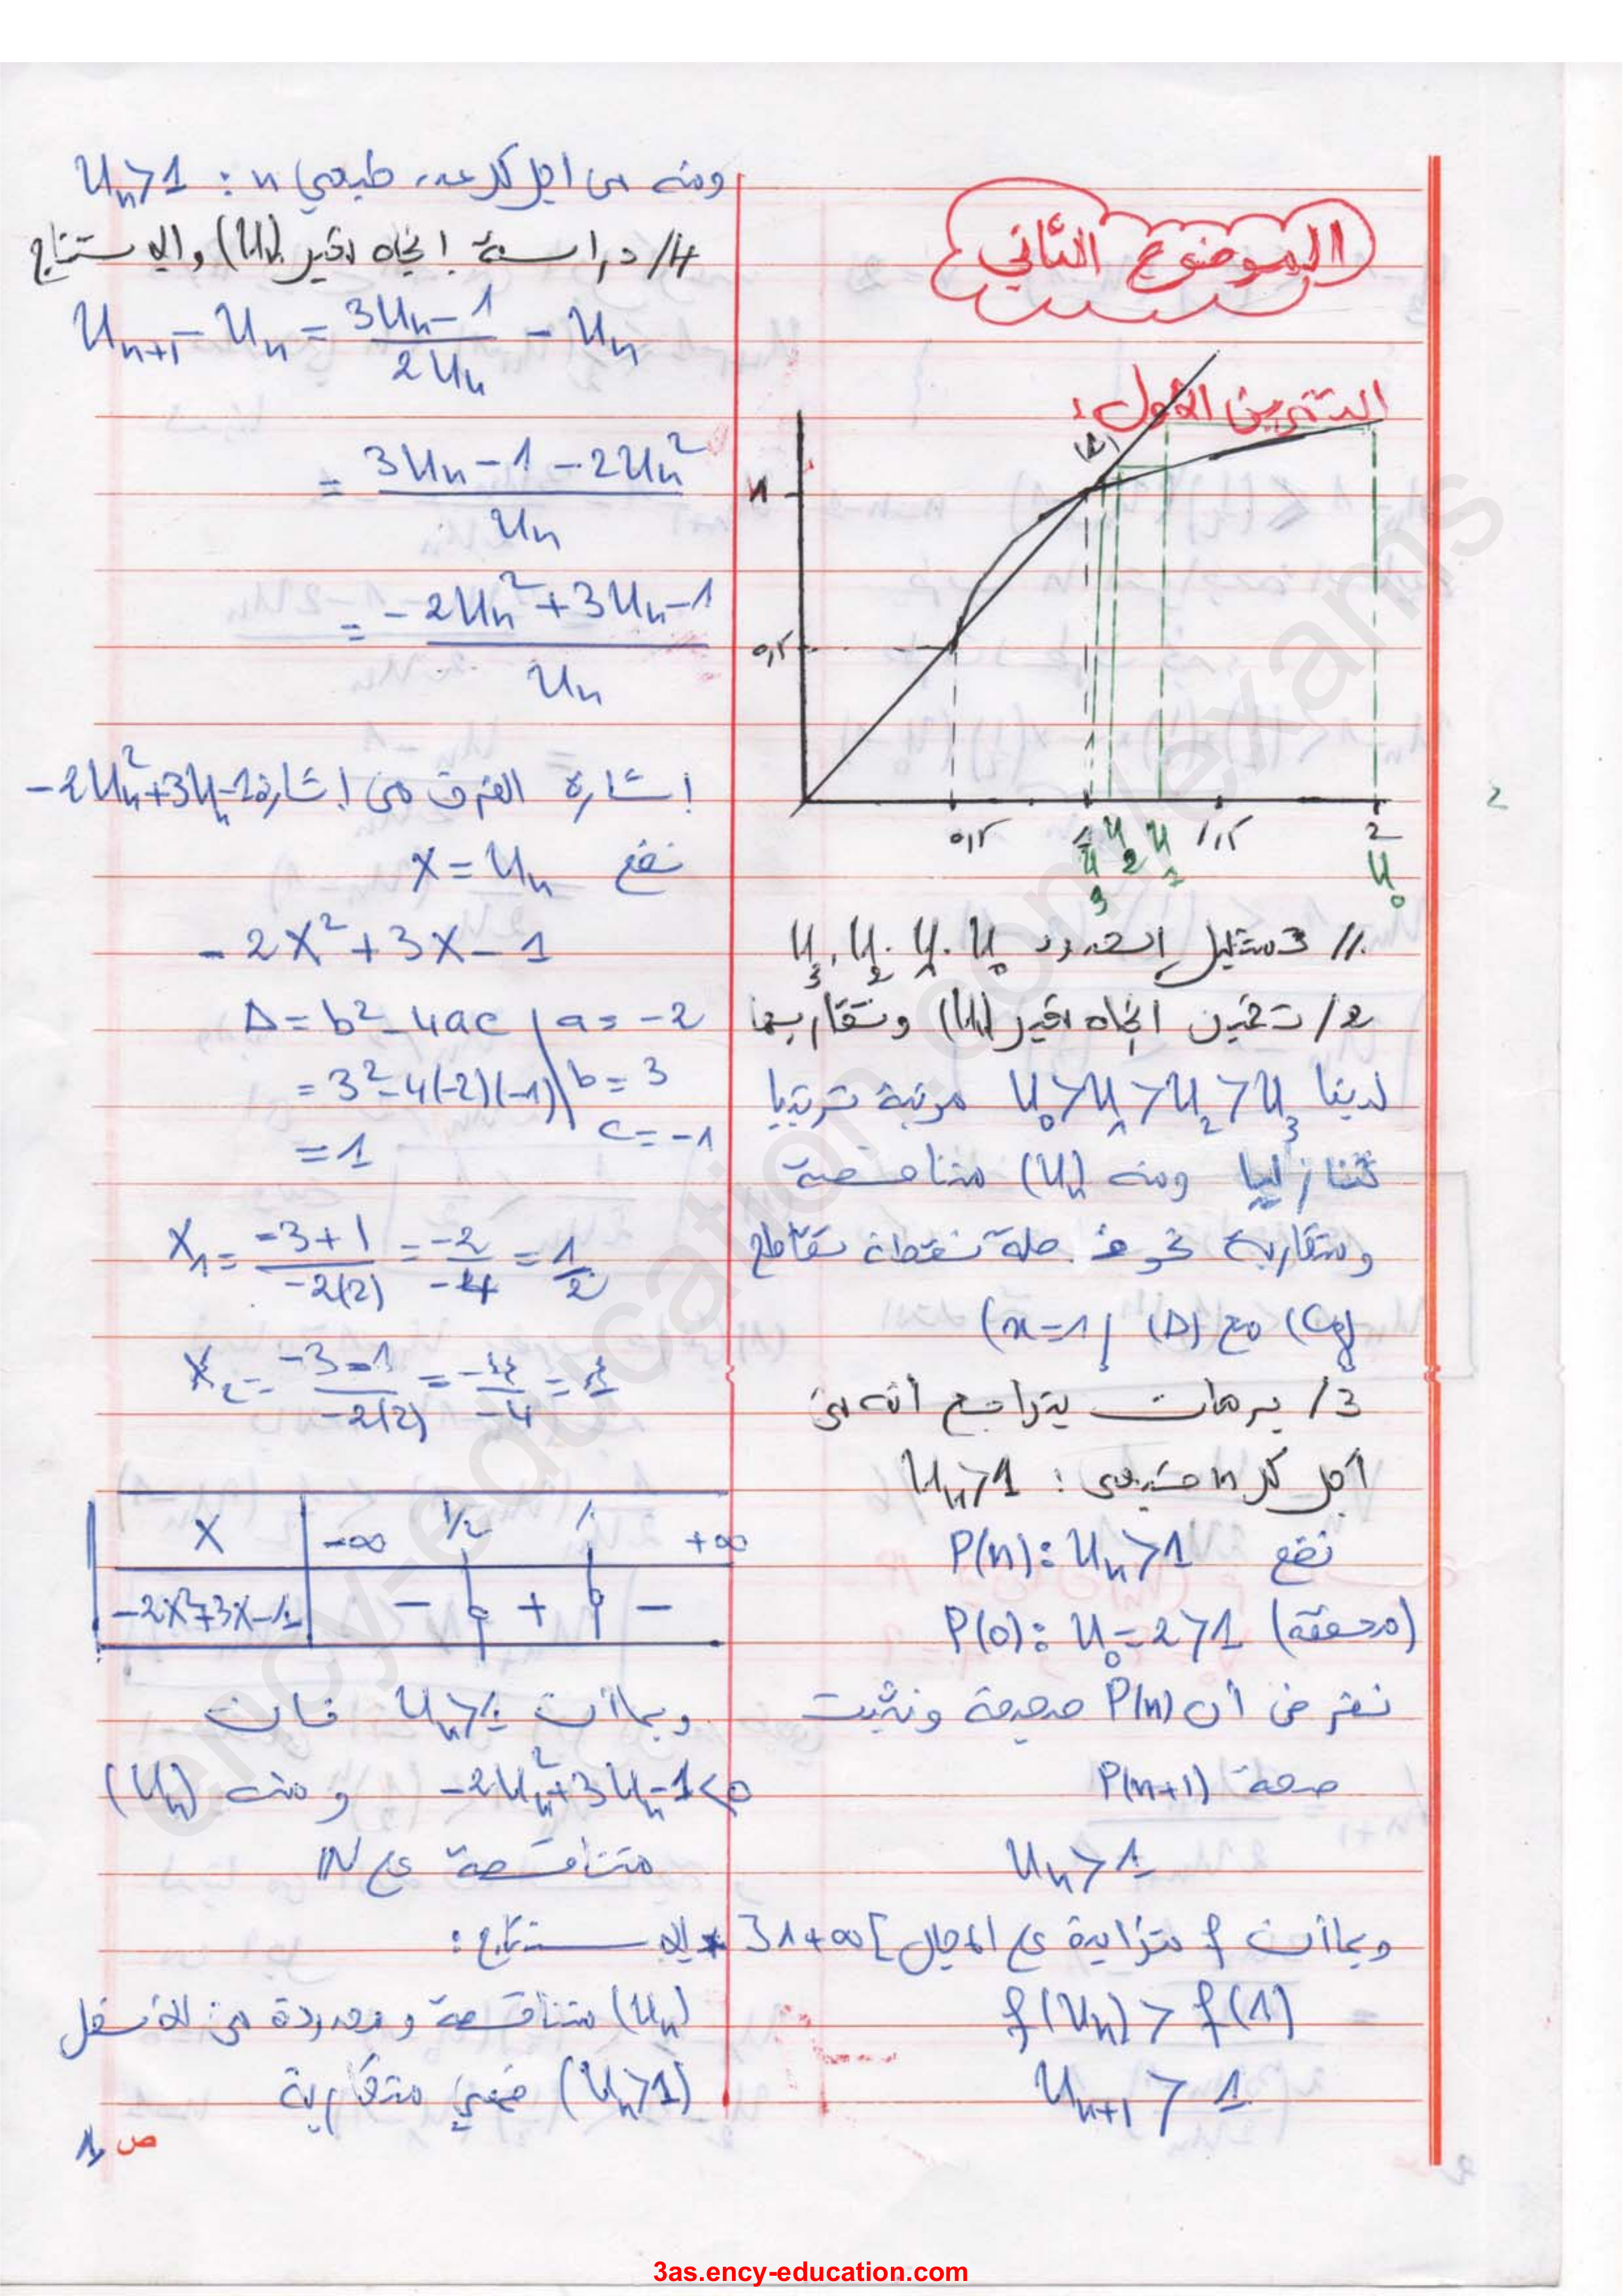 الموضوع الثاني
التمرين الأول:
(Δ)
1
0,5
0,5 1 1,5 2
U3 U2 U1 U0
1/ تمثيل الحدود U0, U1, U2, U3
2/ تخمين اتجاه تغير (Un) وتقاربها
لدينا U0>U1>U2>U3 مرتبة ترتيبا
تنازليا ومنه (Un) متناقصة
ومتقاربة نحو فاصلة نقطة تقاطع
(Cf) مع (Δ) (x=1)
3/ برهان بتراجع أنه من
أجل كل n طبيعي: Un>1
نضع P(n): Un>1
P(0): U0=2>1 (محققة)
نفرض أن P(n) صحيحة ونثبت
صحة P(n+1)
Un>1
وبماأن f متزايدة على المجال ]1+∞[
f(Un) > f(1)
Un+1 > 1
ومنه من اجل كل عدد طبيعي n: Un>1
4/ دراسة اتجاه تغير (Un) والاستنتاج
Un+1 - Un = (3Un-1)/(2Un) - Un
= (3Un-1-2Un²)/Un
= (-2Un²+3Un-1)/Un
اشارة الفرق من اشارة -2Un²+3Un-1
نضع X=Un
-2X²+3X-1
Δ=b²-4ac a=-2
=3²-4(-2)(-1) b=3
=1 c=-1
X1=(-3+1)/(-2(2))=(-2)/(-4)=1/2
X2=(-3-1)/(-2(2))=(-4)/(-4)=1
X -∞ 1/2 1 +∞
-2X²+3X-1 - 0 + 0 -
وبماأن Un>1 فان
-2Un²+3Un-1<0 ومنه (Un)
متناقصة على IN
* الاستنتاج:
(Un) متناقصة ومحدودة من الأسفل
(Un>1) فهي متقاربة
ص 1
ency-education.com/exams
3as.ency-education.com